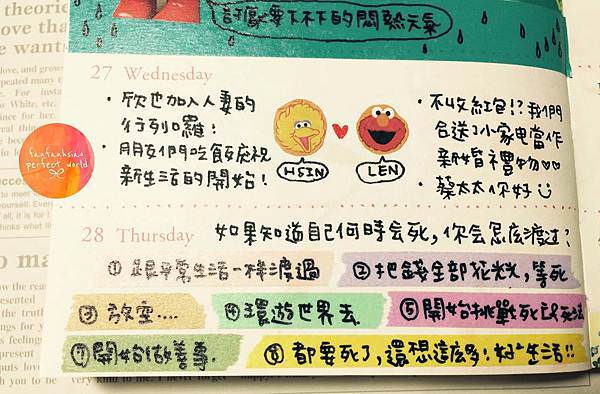 討厭要下不下的悶熱天氣
27 Wednesday
・欣也加入人妻的
行列囉!
・朋友們吃飯慶祝
新生活的開始!
HSIN
LEN
・不收紅包!?我們
合送了小家电當作
新婚禮物♥♥
・蔡太太你好
fanfanhsiao
perfect world
28 Thursday
如果知道自己何時会死,你会怎麼渡过?
①跟平常生活一樣渡過
②把錢全部花光光,等死
③放空....
④環遊世界去
⑤開始挑戰死
⑦開始做善事.
⑧都要死了,還想這麼多!好生活!!